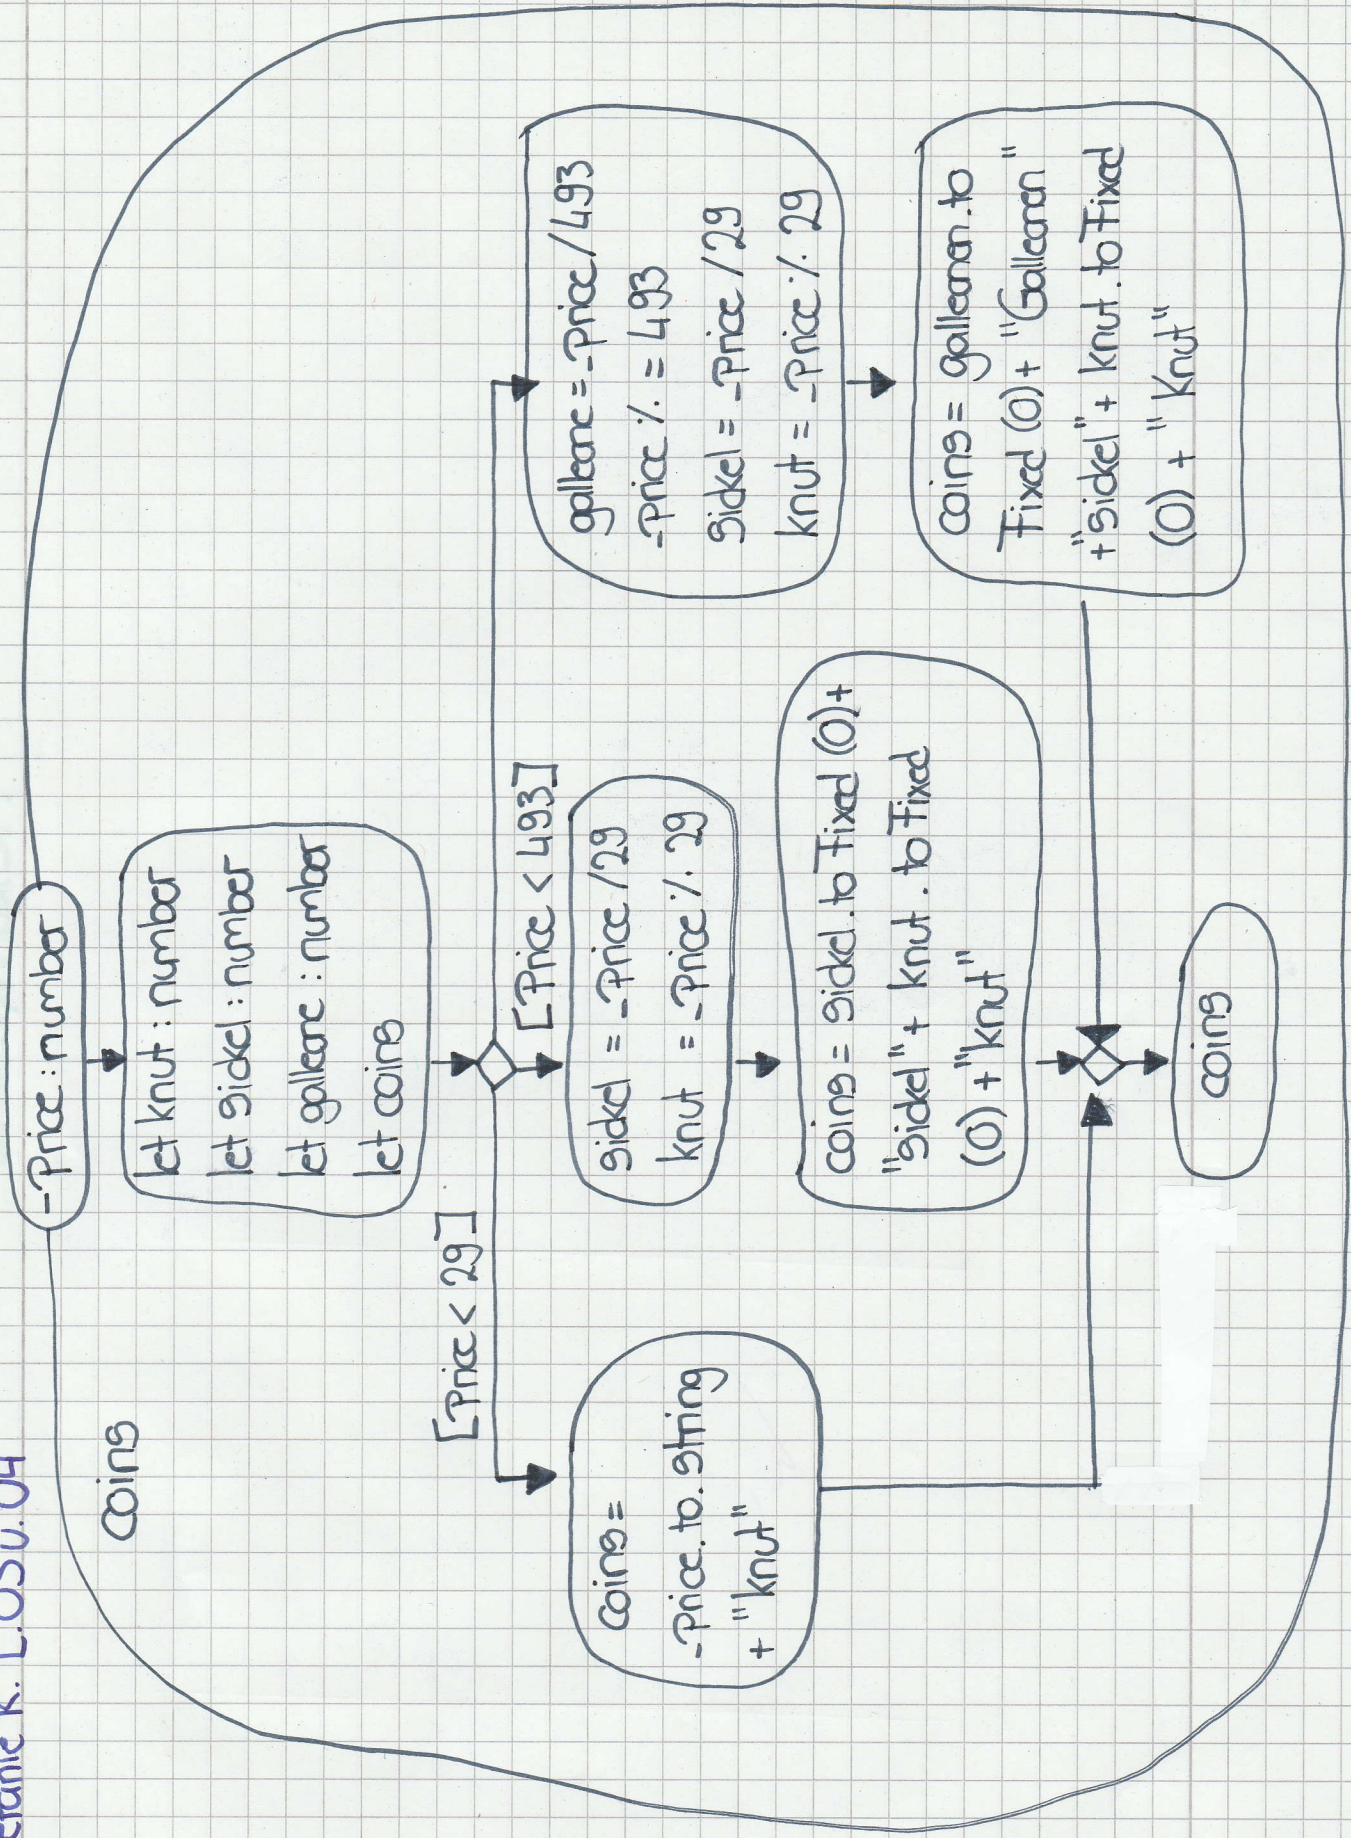 L.03 U.04
coins
_Price : number
let knut : number
let sickel : number
let galleone : number
let coins
[Price < 29]
[Price < 493]
coins =
_Price.to.string
+ "knut"
sickel = _Price / 29
knut = _Price % 29
coins = sickel.toFixed (0)+
"sickel" + knut . toFixed
(0) + "knut"
galleone = _Price / 493
_Price % = 493
sickel = _Price / 29
knut = _Price % 29
coins = galleonen.to
Fixed (0) + "Galleonen"
+"sickel" + knut . toFixed
(0) + " Knut"
coins